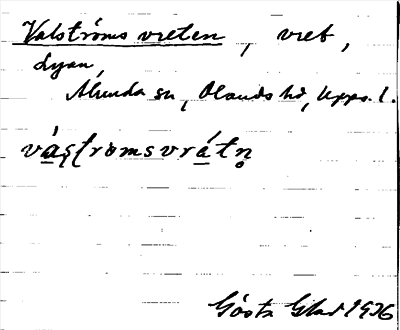 Valströms vreten, vret,
Lyan,
Alunda sn, Olands hd, Upps. l.
vástromsvrátn
Gösta Glad 1936